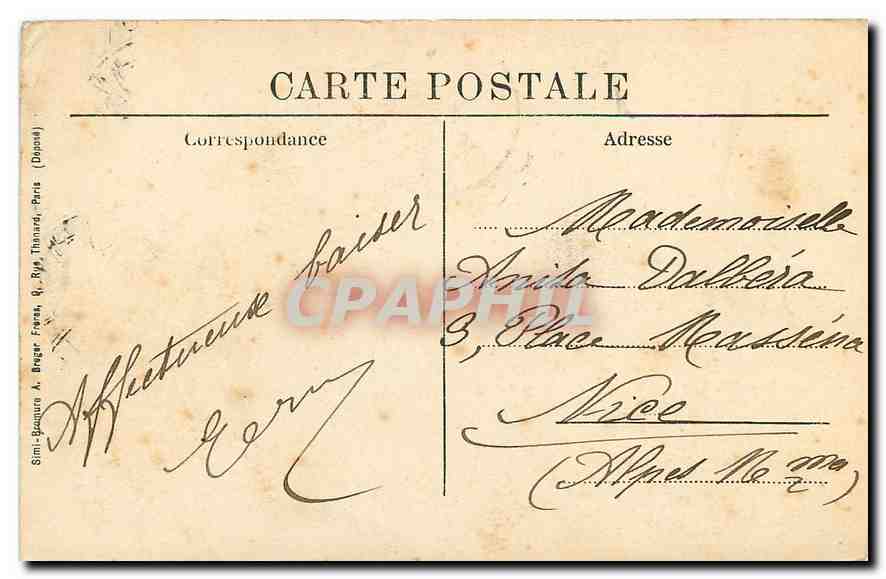 CARTE POSTALE
Correspondance
Adresse
Simi-Bromure A. Breger Frères, 9, Rue Thénard, Paris (Déposé)
Affectueuse baiser
Mademoiselle
Anita Dalbéra
3, Place Masséna
Nice
(Alpes Mmes)
CPAPHIL